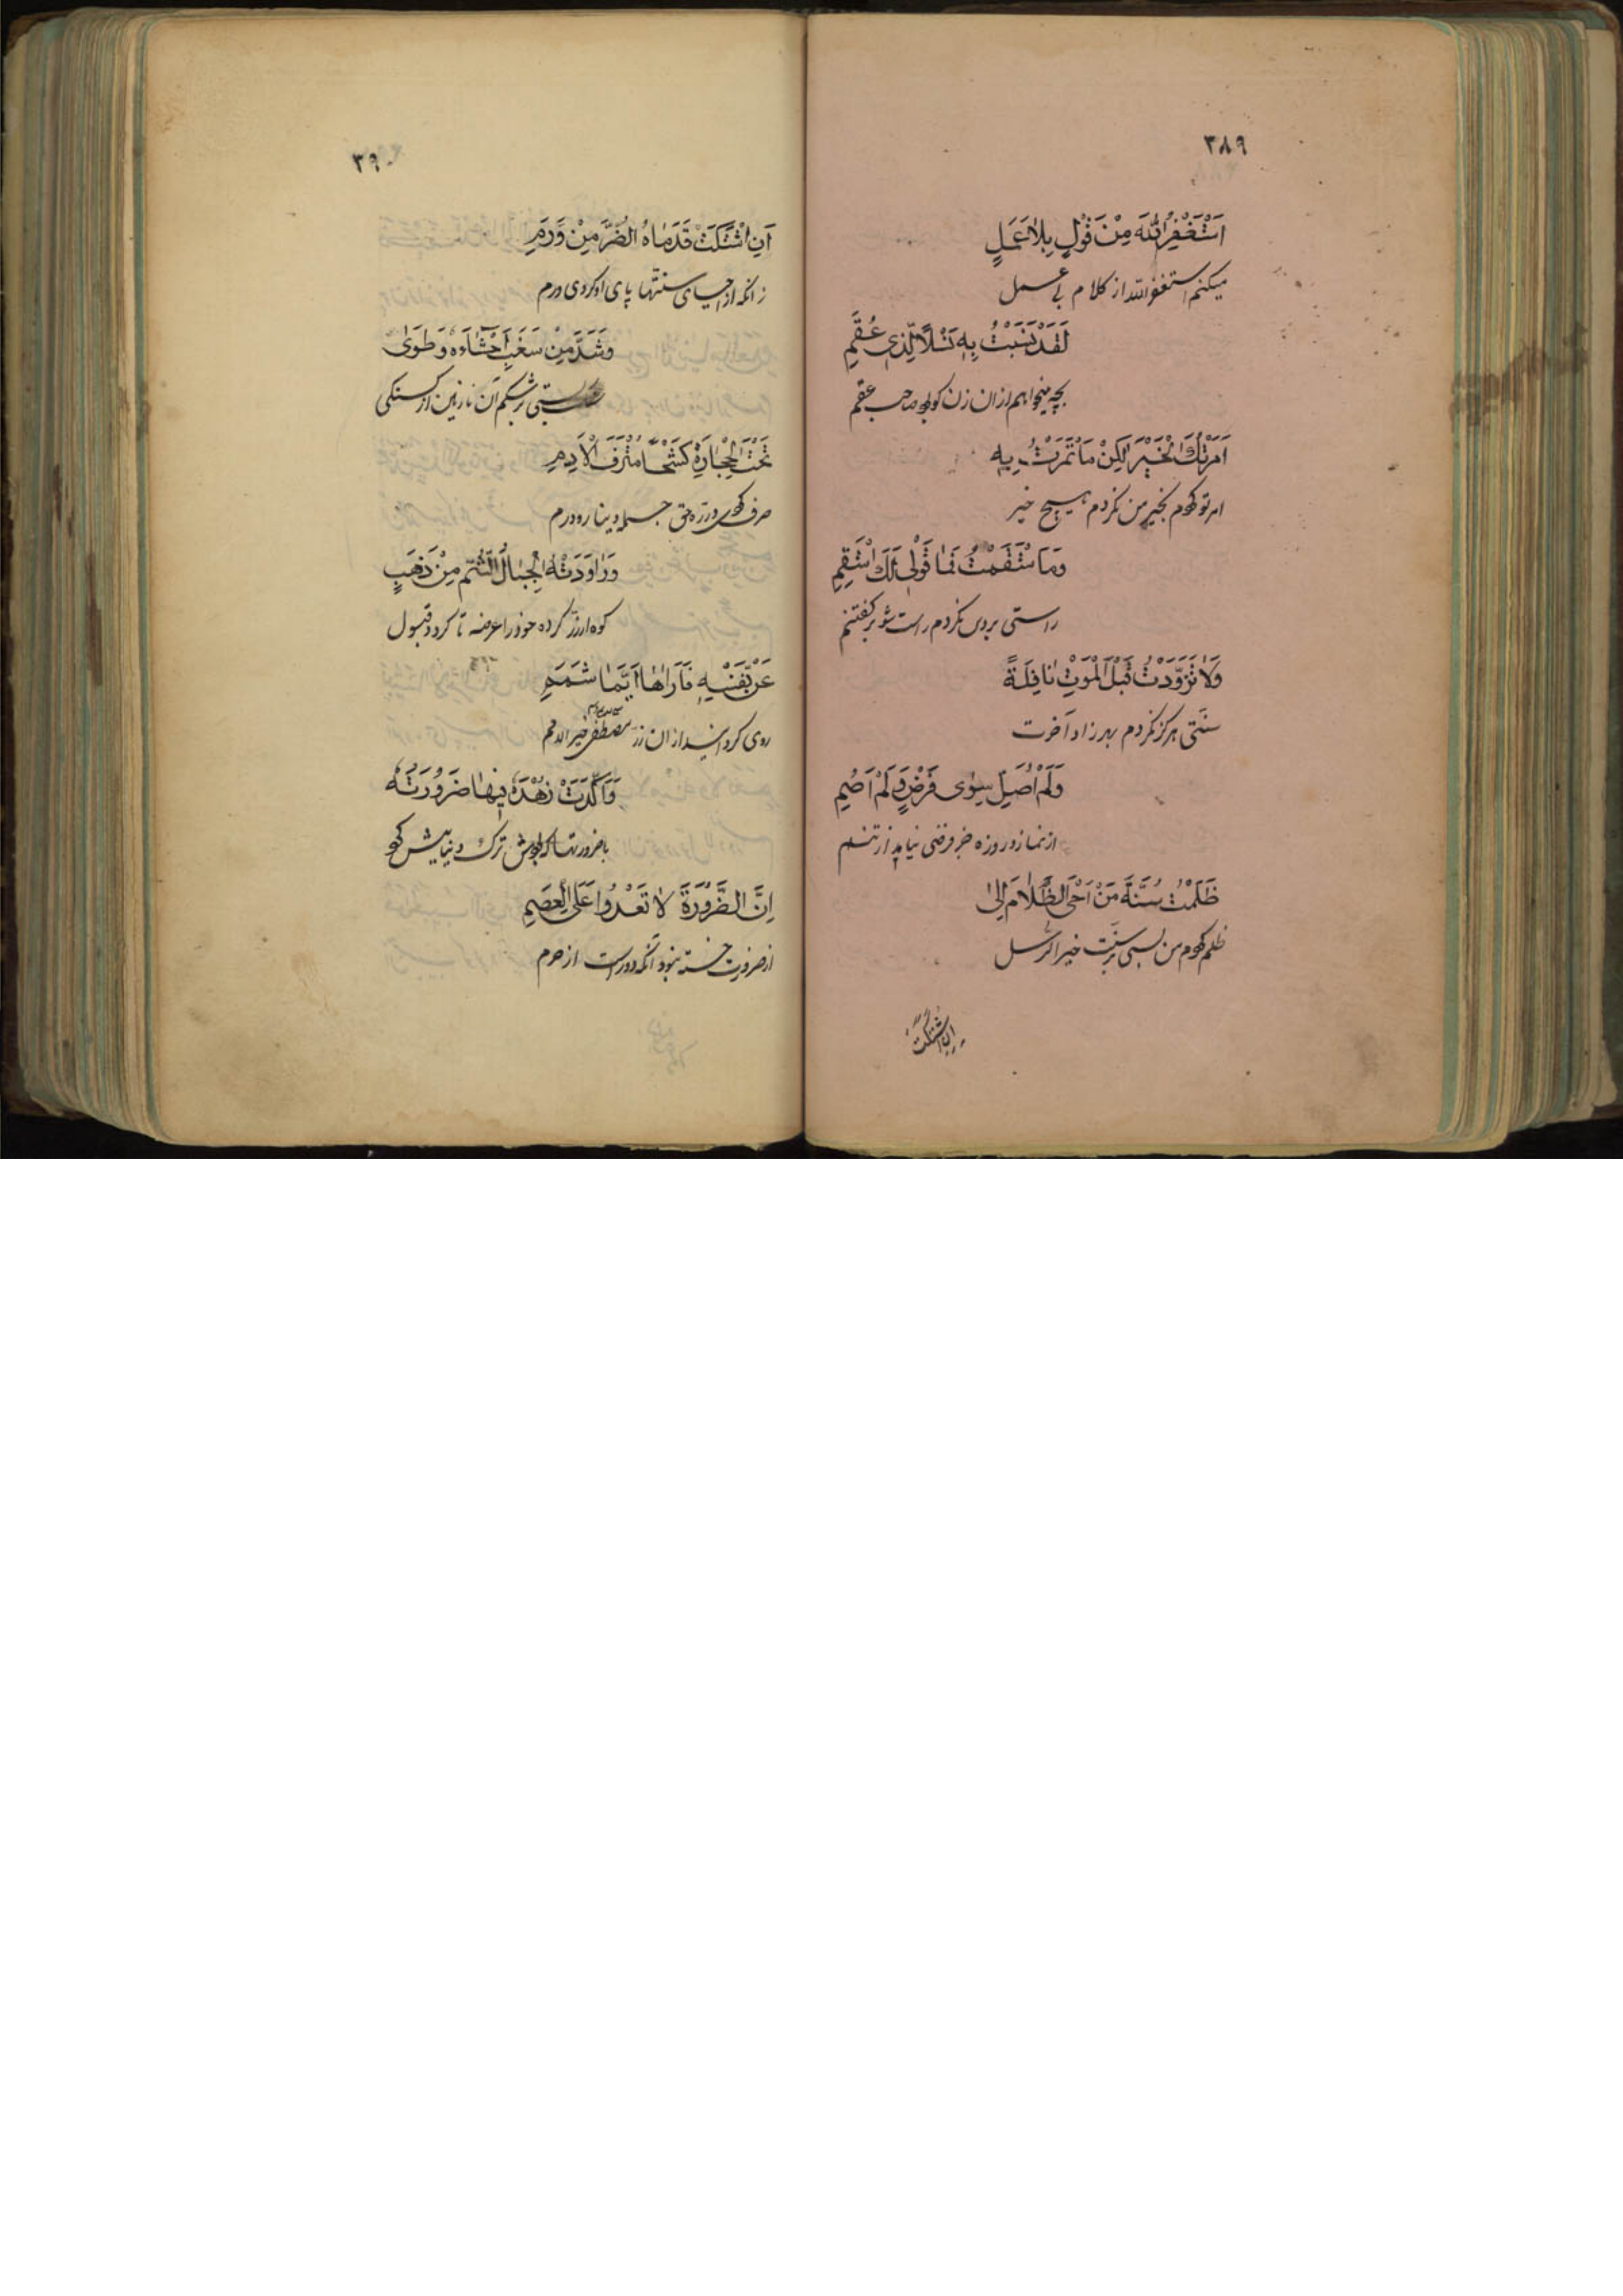 ۳۸۹
اَسْتَغْفِرُ اللّٰهَ مِنْ قَوْلٍ بِلاٰ عَمَلٍ
میکنم استغفر الله از کلام بی عمل
لَقَدْ نَسَبْتُ بِهٖ نَسْلًا لِّذِی عُقُمِ
بچه میخواهم ازان زن کو بود صاحب عقم
اَمَرْتُكَ الْخَیْرَ لٰكِنْ مَا ئْتَمَرْتُ بِهٖ
امر تو کردم بخیر من نکردم هیچ خیر
وَمَا سْتَقَمْتُ فَمَا قَوْلِی لَكَ اسْتَقِمِ
راستی بر دین نکردم راست شو بر گفتنم
وَلاٰ تَزَوَّدْتُ قَبْلَ الْمَوْتِ نَافِلَةً
سنتی هرگز نکردم بهر زاد آخرت
وَلَمْ اُصَلِّ سِوٰی فَرْضٍ وَلَمْ اَصُمِ
از نماز و روزه جز فرضی نیاید از تنم
ظَلَمْتُ سُنَّةَ مَنْ اَحْیَ الظَّلاٰمَ اِلٰی
ظلم کردم من بسی بر سنت خیر الرسل
اِنِ اشْتَكَتْ
۳۹۰
اَنِ اشْتَكَتْ قَدَمَاهُ الضُّرَّ مِنْ وَرَمِ
زانکه از احیای سنتها پای او کردی ورم
وَشَدَّ مِنْ سَغَبٍ اَحْشَاءَهٗ وَطَوٰی
بستی بر شکم آن نازنین از گسنکی
تَحْتَ الْحِجَارَةِ كَشْحًا مُتْرَفَ الْاَدَمِ
صرف کردی در ره حق جمله دینار و درم
وَرَاوَدَتْهُ الْجِبَالُ الشُّمُّ مِنْ ذَهَبٍ
کوه از زر کرده خود را عرضه تا کردد قبول
عَنْ نَفْسِهٖ فَاَرَاهَا اَیَّمَا شَمَمِ
روی کردانید ازان زر مصطفی خیر الامم
وَاَكَّدَتْ زُهْدَهٗ فِیهَا ضَرُورَتُهٗ
با ضرورتها که بودش ترک دنیا بیش کرد
اِنَّ الضَّرُورَةَ لاٰ تَعْدُوا عَلَی الْعِصَمِ
از ضرورت خسته نبود آنکه دورست از حرم